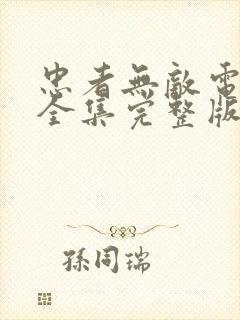 忠者無敵電
全集完整版
孫同瑞